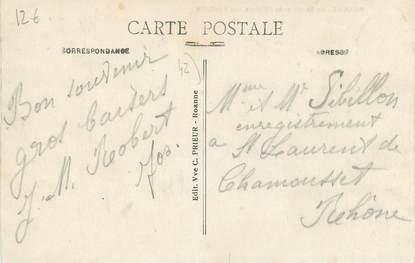 12€
CARTE POSTALE
CORRESPONDANCE
ADRESSE
Bon souvenir
gros baisers
J. M. Robert
(42)
Edit. Vve C. PRIEUR - Roanne
Mme et Mr Sibillon
enregistrement
a St Laurent de
Chamousset
Rhône